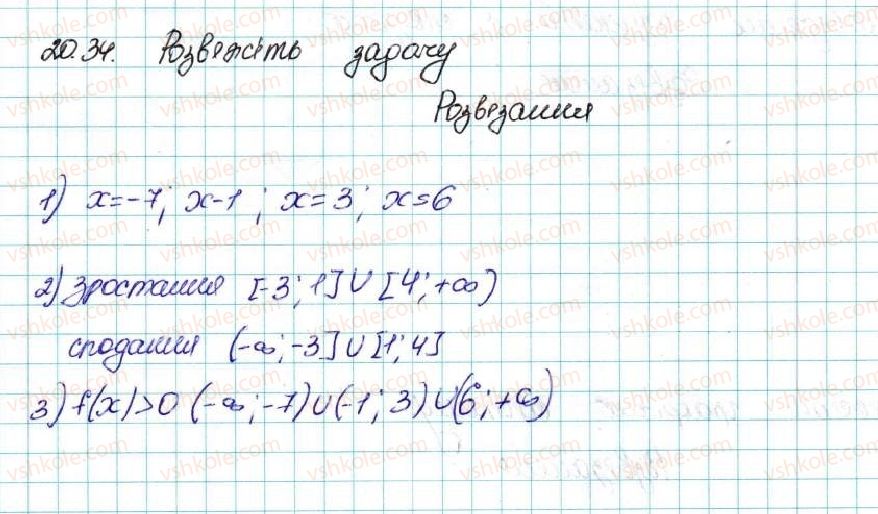 20.34. Розвяжіть задачу
Розвязання
1) x=-7; x-1; x=3; x=6
2) Зростання [-3; 1]∪[4; +∞)
спадання (-∞; -3]∪[1; 4]
3) f(x)>0 (-∞; -7)∪(-1; 3)∪(6; +∞)